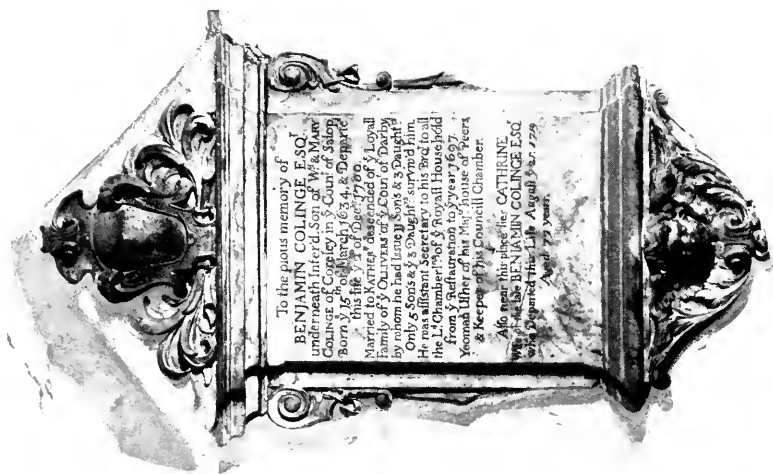 To the pious memory of
BENJAMIN COLINGE ESQ.ʳ
underneath Interᵈ Son of Wᵐ & MARY
COLINGE of Coreley in yᵉ Counᵗ of Salop
Born yᵉ 15ᵗʰ of March 1634, & Departᵉ
this life yᵉ of Decʳ 1700.
Married to descended of yᵉ Loyall
Family of yᵉ OLIVERS of yᵉ Counᵗ of Darby,
by whom he had Issue 11 Sons & 3 Daughtʳˢ
Only 5 Sons & yᵉ 3 Daughtʳˢ surviv'd him.
He was assistant Secretary to his to all
the Lᵈ Chamberlⁿˢ of yᵉ Royall Household
from yᵉ Restauration to yᵉ year 1697.
Yeoman Usher of his Majᵗⁱᵉˢ house of Peers,
& Keeper of his Councill Chamber.
Also near this place lies CATHRINE
Wife of the late BENJAMIN COLINGE ESQʳ
who Departed this Life August yᵉ
Aged 77 years.